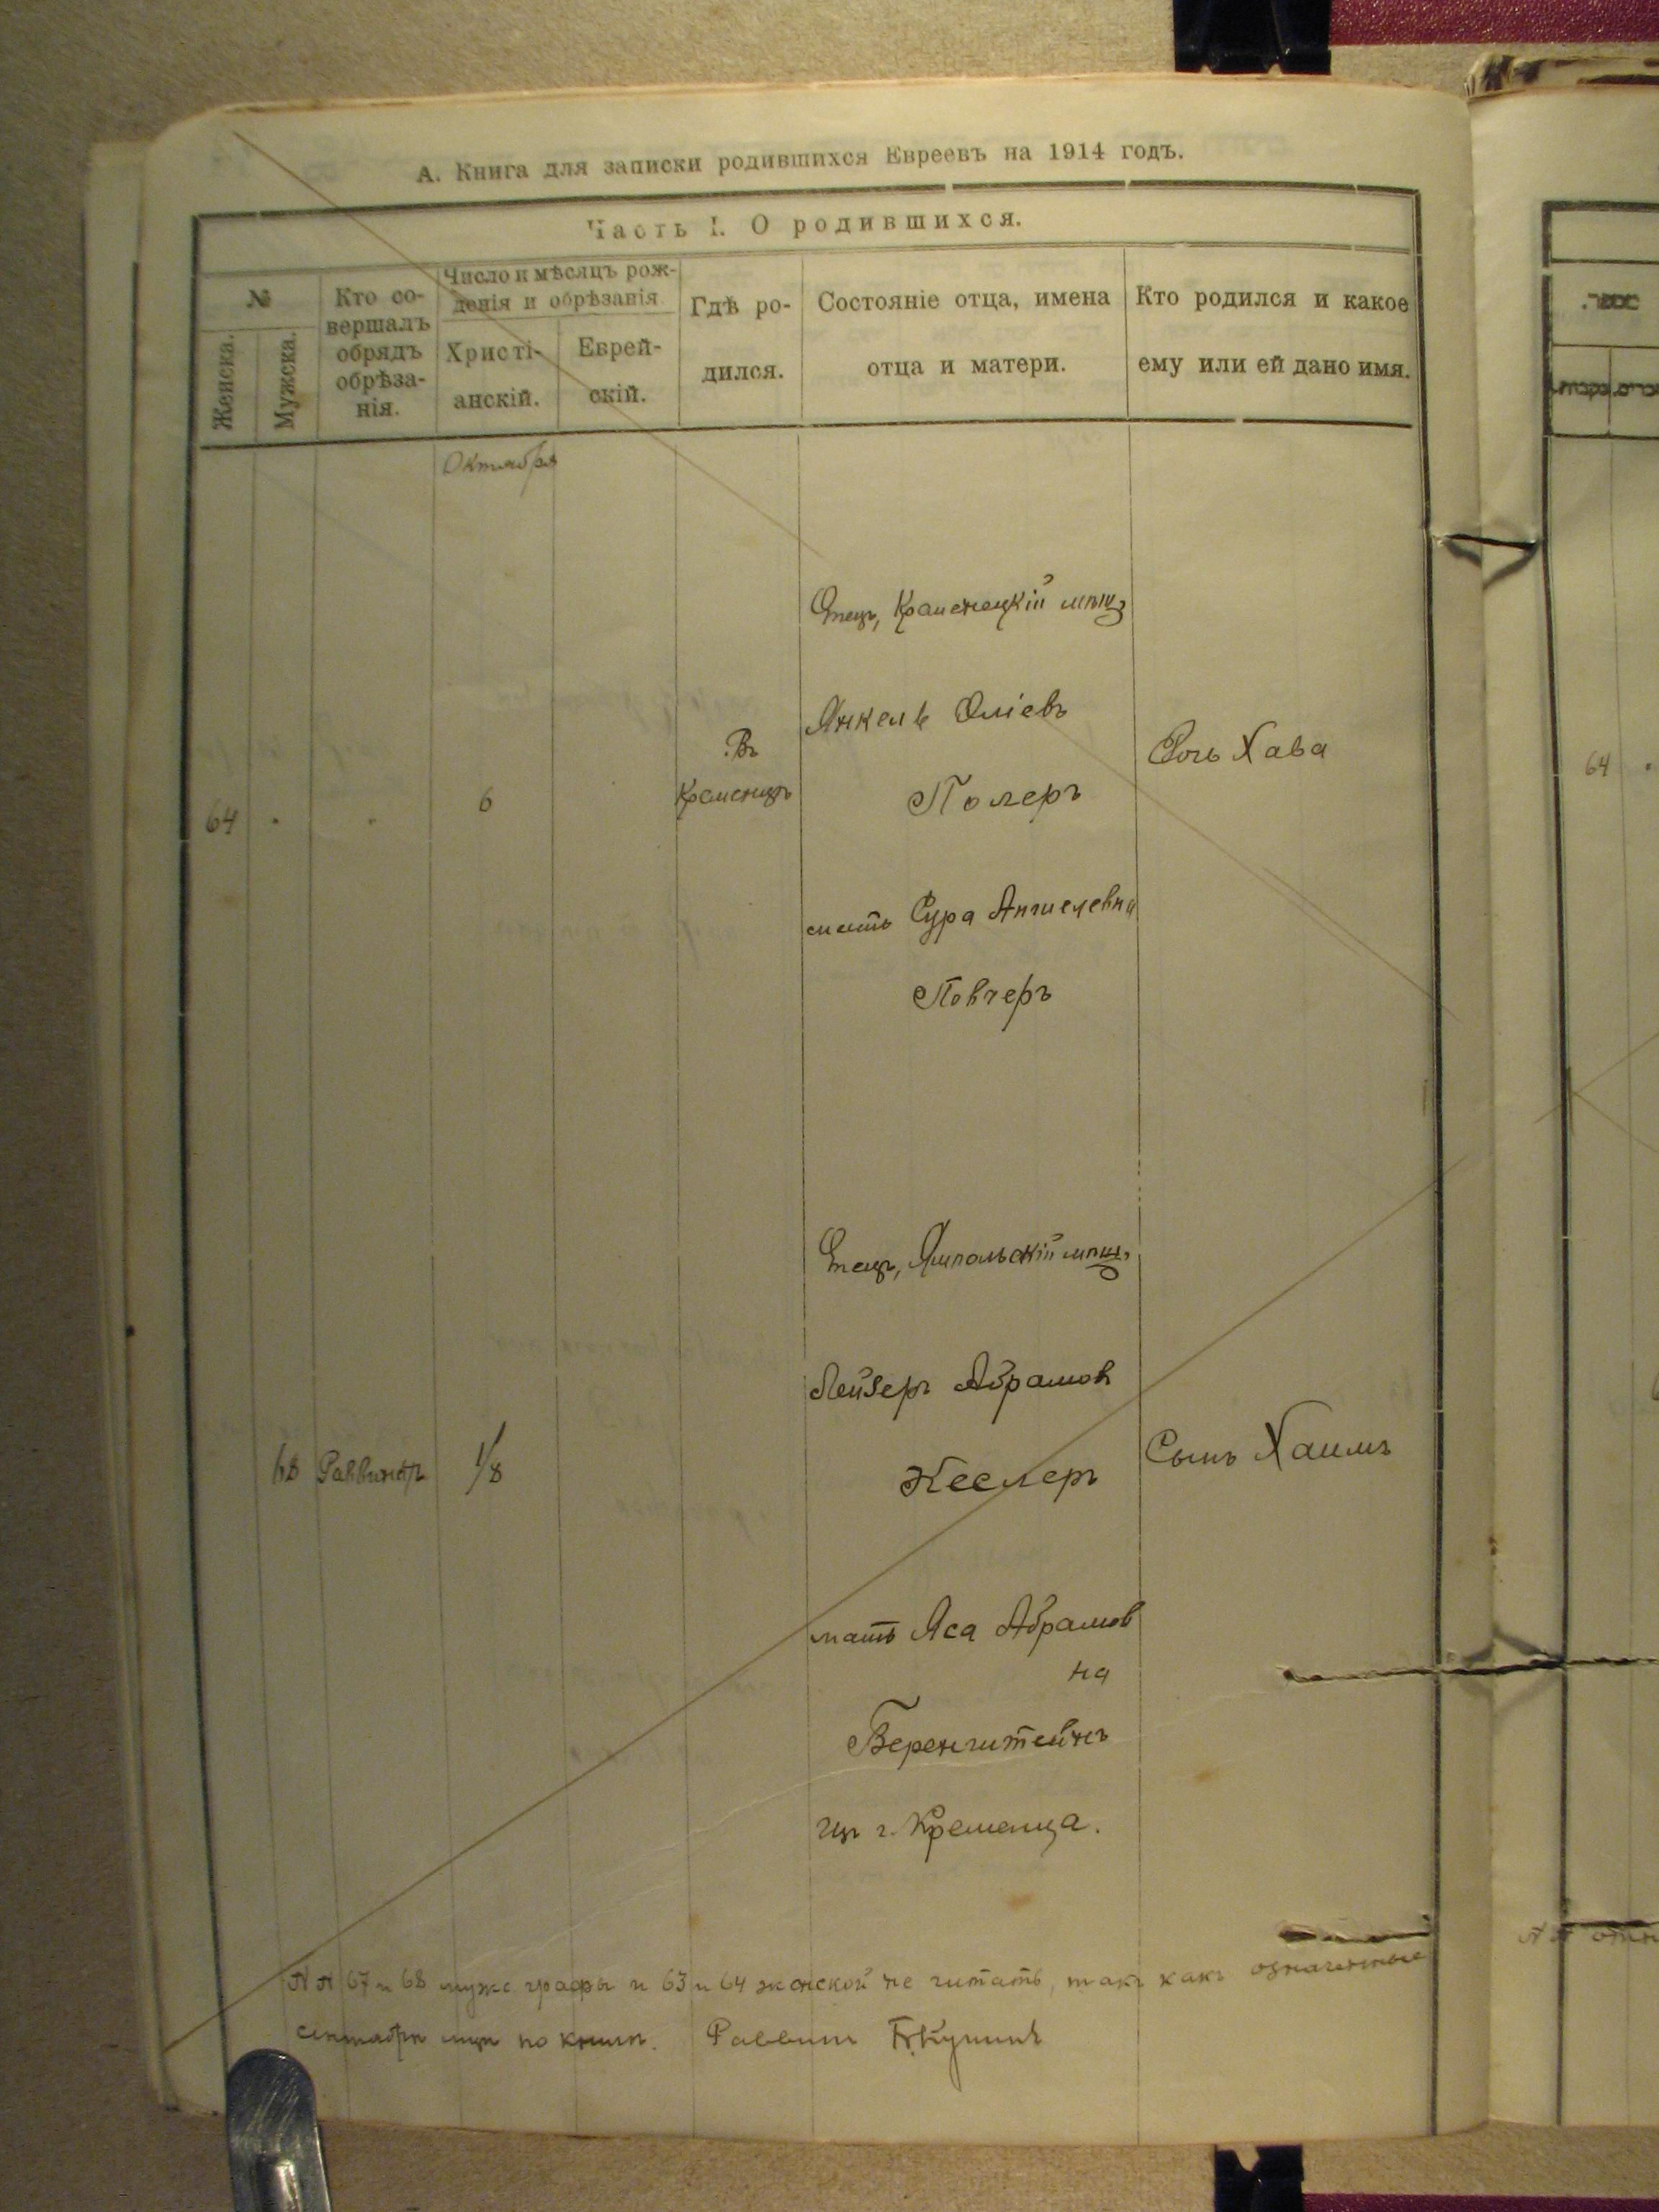 А. Книга для записки родившихся Евреевъ на 1914 годъ.
Часть I. О родившихся.
№
Женска.
Мужска.
Кто со-
вершалъ
обрядъ
обрѣза-
нія.
Число и мѣсяцъ рож-
денія и обрѣзанія
Христі-
анскій.
Еврей-
скій.
Гдѣ ро-
дился.
Состояніе отца, имена
отца и матери.
Кто родился и какое
ему или ей дано имя.
Октября
64
6
Въ
Кременцѣ
Отецъ, Кременецкій мѣщ.
Янкель
Полеръ
мать Сура
Повчеръ
Дочь Хава
68 Раввинъ 1/8
Отецъ, Ямпольскій мѣщ.
Лейзеръ Абрамов
Кеслеръ
мать Яса Абрамов
на
Беренштейнъ
г. Кременца.
Сынъ Хаимъ
67 и 68 муж. графы и 63 и 64 женской не читать, такъ какъ означенные
сентября по книгѣ. Раввинъ
64